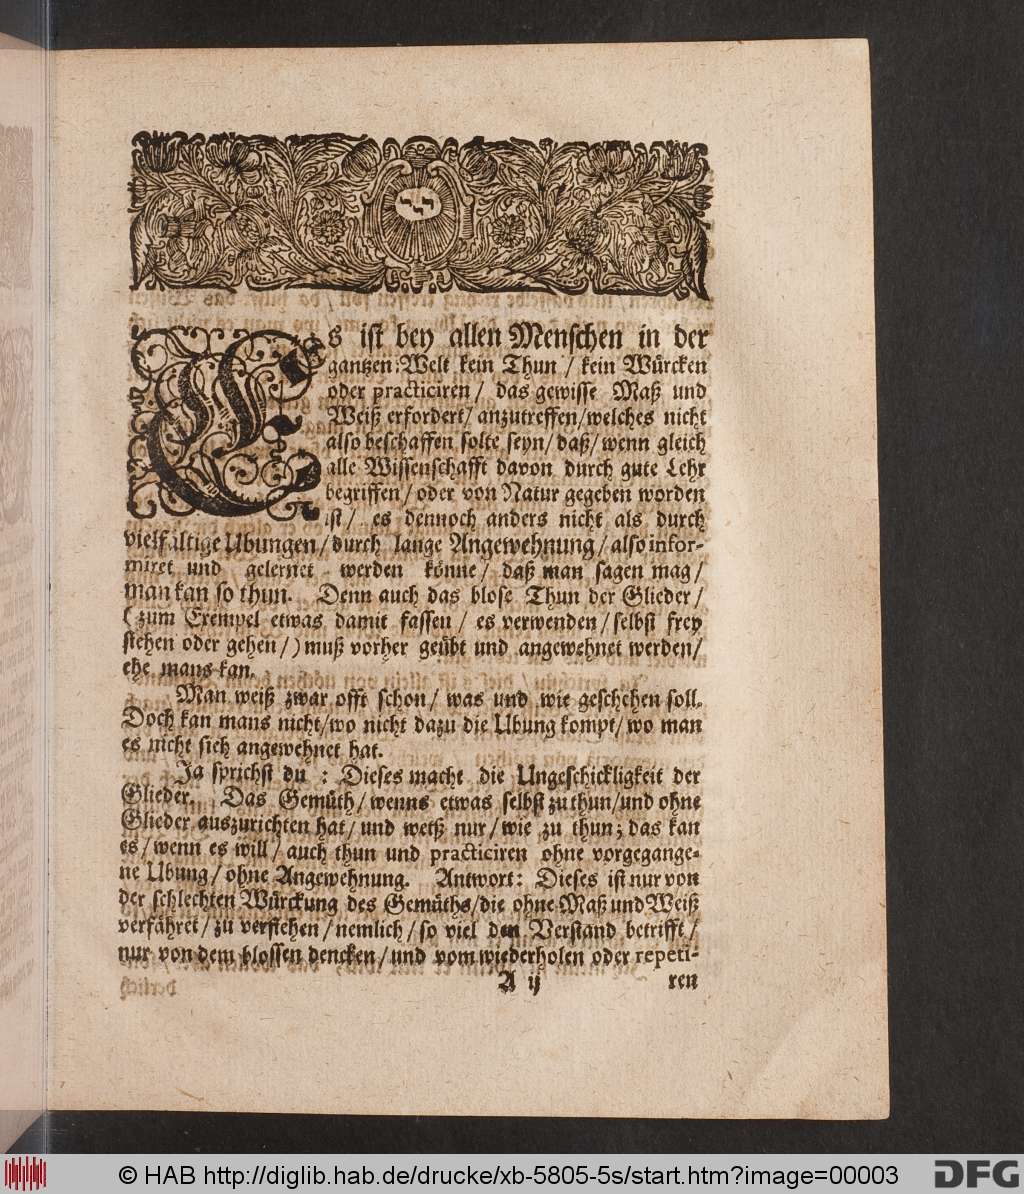 Es ist bey allen Menschen in der
gantzen Welt kein Thun / kein Würcken
oder practiciren / das gewisse Maß und
Weiß erfordert / anzutreffen / welches nicht
also beschaffen solte seyn / daß / wenn gleich
alle Wissenschafft davon durch gute Lehr
begriffen / oder von Natur gegeben worden
ist / es dennoch anders nicht als durch
vielfältige Ubungen / durch lange Angewehnung / also infor-
miret und gelernet werden könne / daß man sagen mag /
man kan so thun. Denn auch das blose Thun der Glieder /
( zum Exempel etwas damit fassen / es verwenden / selbst frey
stehen oder gehen / ) muß vorher geübt und angewehnet werden /
ehe mans kan.
Man weiß zwar offt schon / was und wie geschehen soll.
Doch kan mans nicht / wo nicht dazu die Ubung kompt / wo man
es nicht sich angewehnet hat.
Ja sprichst du : Dieses macht die Ungeschickligkeit der
Glieder. Das Gemüth / wenns etwas selbst zu thun / und ohne
Glieder auszurichten hat / und weiß nur / wie zu thun; das kan
es / wenn es will / auch thun und practiciren ohne vorgegange-
ne Ubung / ohne Angewehnung. Antwort: Dieses ist nur von
der schlechten Würckung des Gemüths / die ohne Maß und Weiß
verfähret / zu verstehen / nemlich / so viel den Verstand betrifft /
nur von dem blossen dencken / und vom wiederholen oder repeti-
A ij ren
© HAB http://diglib.hab.de/drucke/xb-5805-5s/start.htm?image=00003
digilib DFG